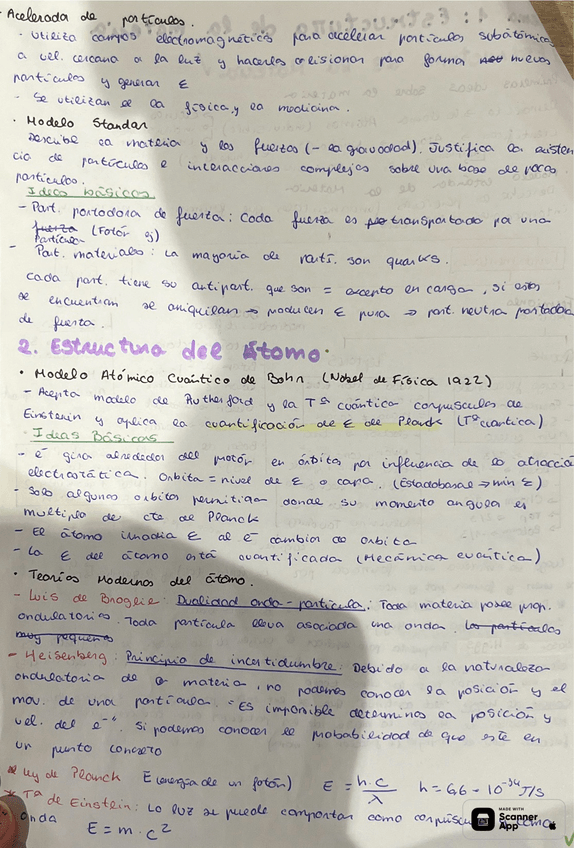 Acelerada de partículas.
- Utiliza campos electromagnetics para acelerar partículas subatómicas
a vel. cercana a la luz y hacerlas colisionar para forma nuevas
partículas y generar ε
- Se utilizan en la física, y la medicina.
• Modelo Standar
Describe la materia y las fuerzas (- la gravedad). Justifica la existen
cia de partículas e interacciones complejas sobre una base de pocas
partículas.
Ideas básicas
- Part. portadora de fuerza: Cada fuerza es transportada por una
fuerza (Fotón ej)
Partícula
- Part. materiales: La mayoría de partí. son quarks.
Cada part. tiene su antipart. que son = excepto en cargas, si estas
se encuentran se aniquilan → producen ε pura → part. neutra portadora
de fuerza.
2. Estructura del Átomo.
• Modelo Atómico Cuántico de Bohn (Nobel de Física 1922)
- Acepta modelo de Rutherford y la Tª cuántica corpúsculos de
Einstein y aplica la cuantificación de ε de Planck (Tª cuantica)
- Ideas Básicas
- e⁻ gira alrededor del protón en órbitas por influencia de la atracció
electrostática. Orbita = nivel de ε o capa. (Estado basal → min ε)
- Solo algunas orbitas permitidas donde su momento angular es
multiplo de cte de Planck
- El átomo irradia ε al e⁻ cambiar de orbita
- La ε del átomo está cuantificada (Mecánica cuántica)
• Teorías Modernas del átomo.
- Luis de Broglie: Dualidad onda-partícula: Toda materia posee prop.
ondulatorias. Toda partícula lleva asociada una onda. Las partículas
muy pequeñas
- Heisenberg: Principio de incertidumbre: Debido a la naturaleza
ondulatoria de la materia, no podemos conocer la posición y el
mov. de una partícula. "Es imposible determinar la posición y
vel. del e⁻". Si podemos conocer la probabilidad de que este en
un punto concreto
* Ley de Planck E (energía de un fotón) E = h·c/λ h = 6,6 · 10⁻³⁴ J/s
* Tª de Einstein: La luz se puede comportar como corpúsculo o como
onda
E = m·c²
MADE WITH
Scanner
App